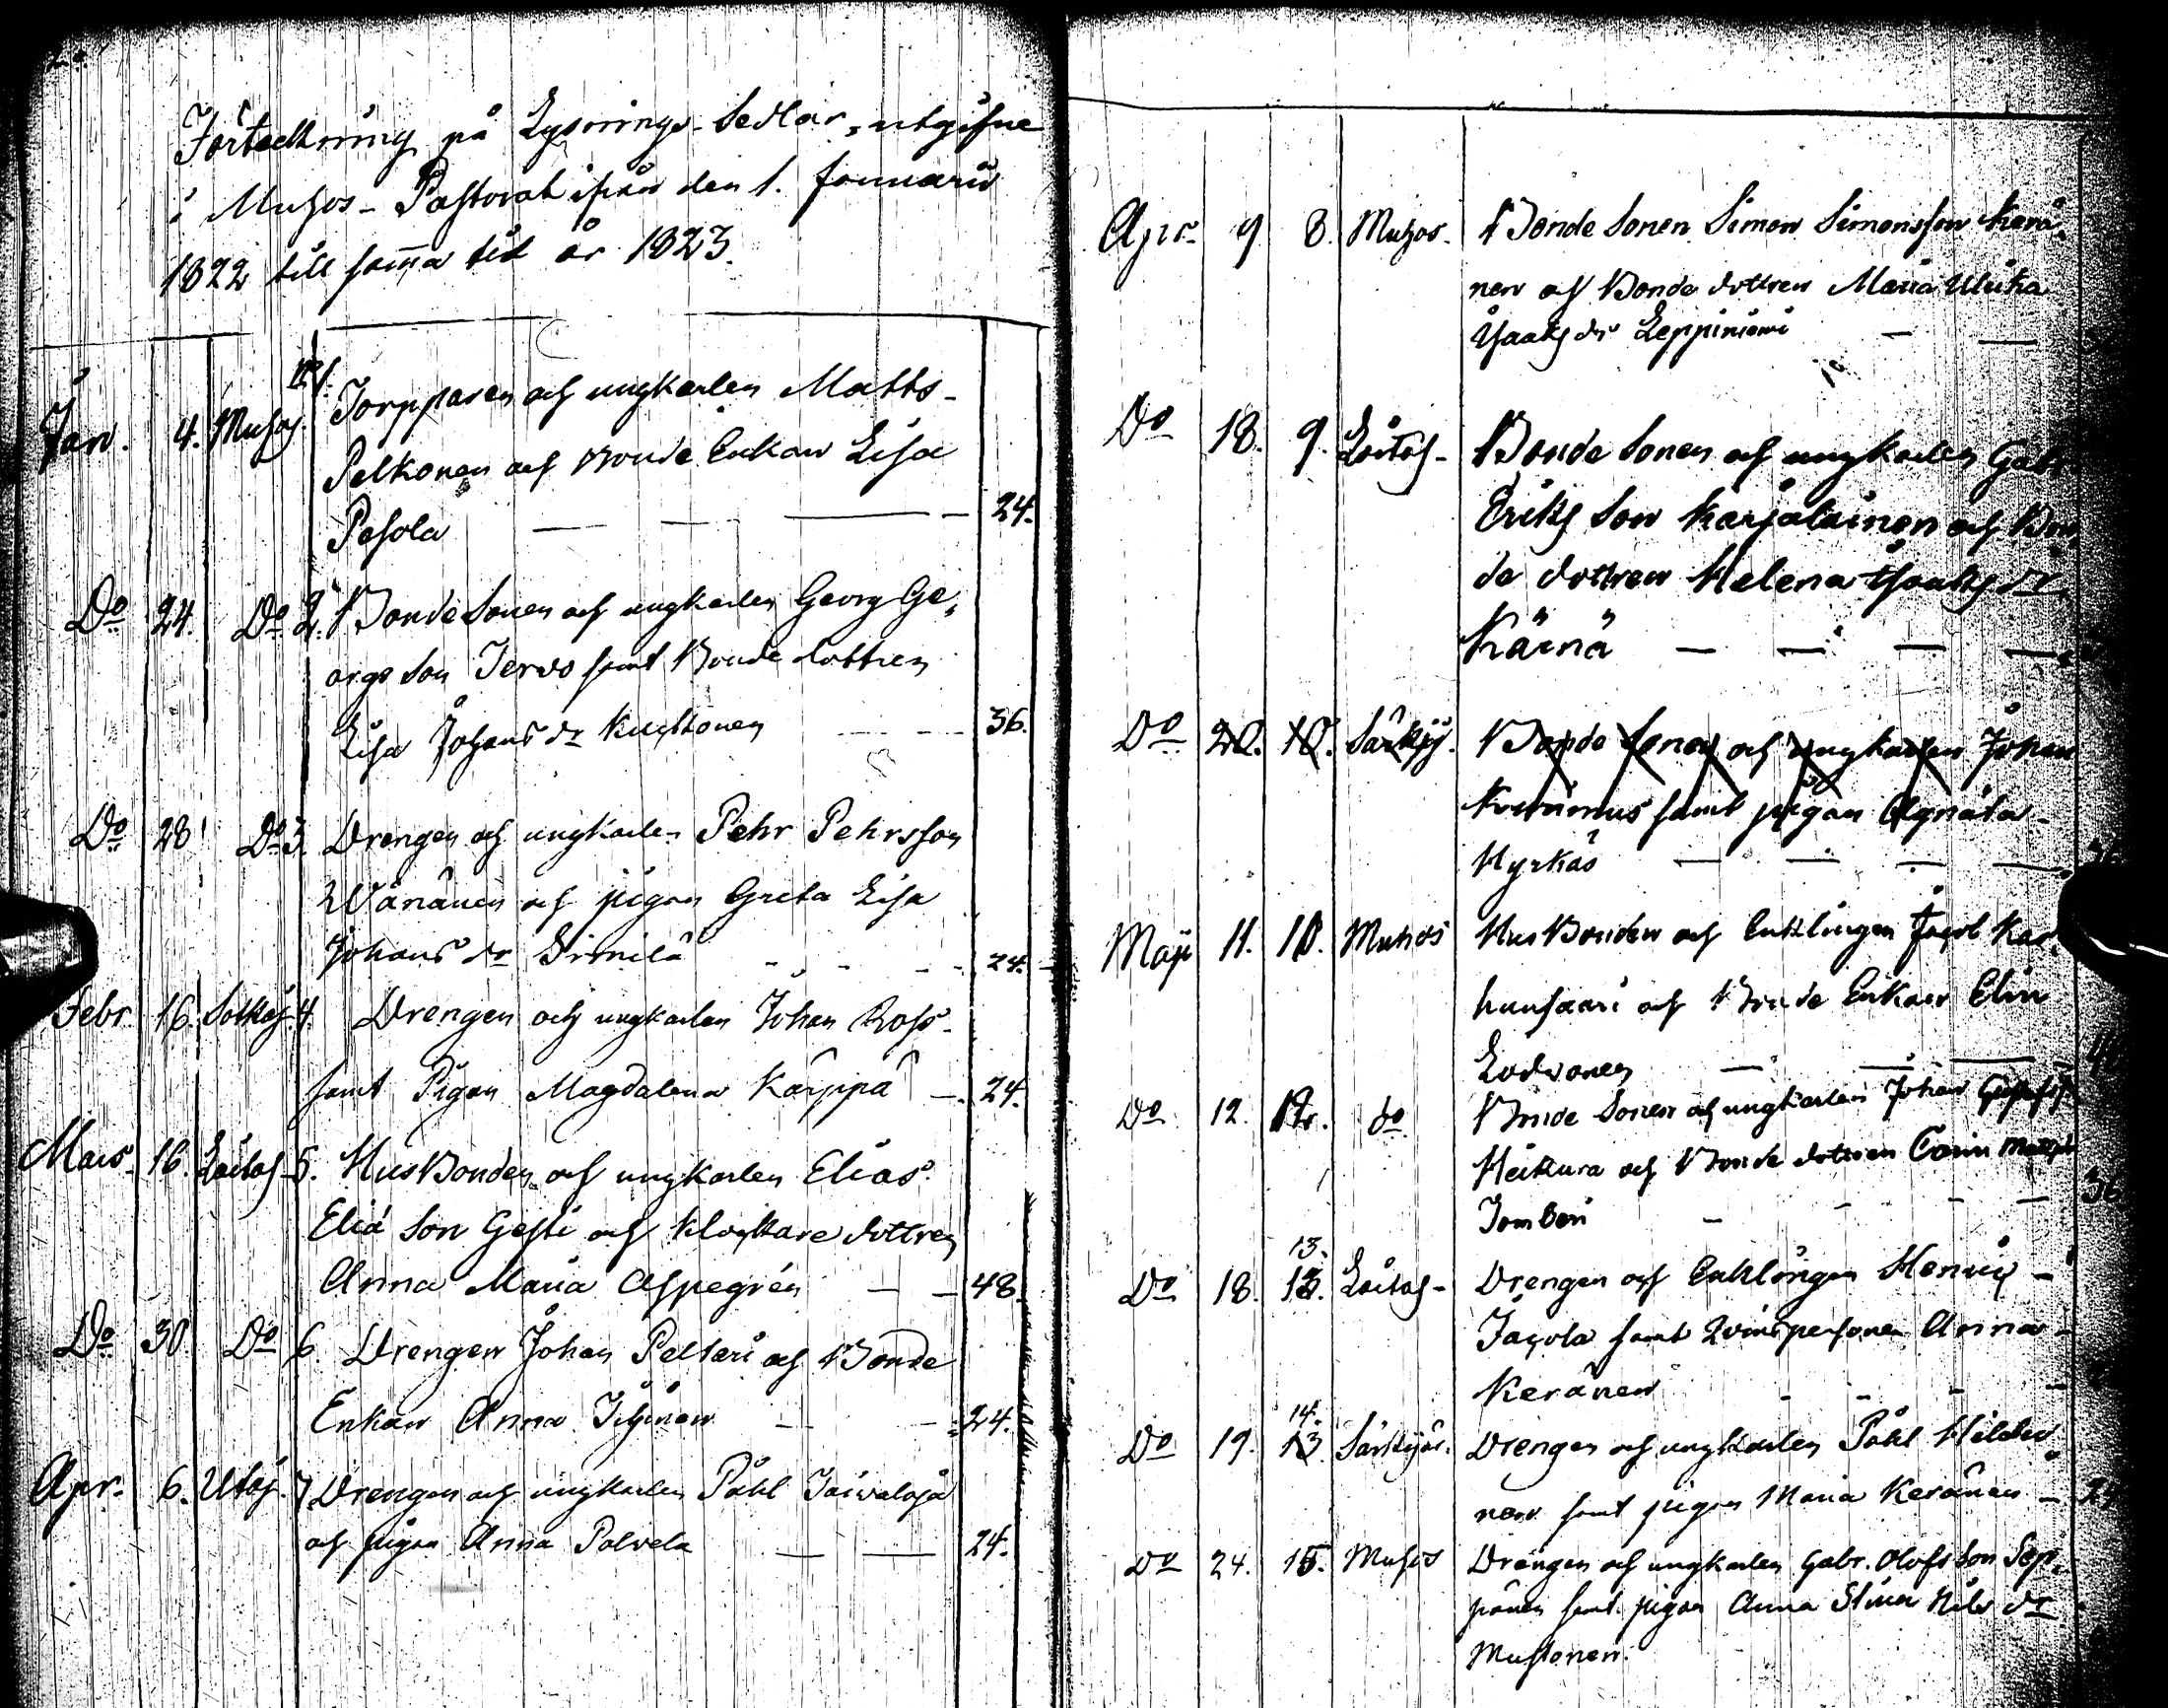 Förteckning på Lysnings-Sedlar, utgifne
i Muhos-Pastorat ifrån den 1. Januarii
1822 till samma tid år 1823.
Jan. 4. Muhos 1. Torpparen och ungkarlen Matts
Pelkonen och Bonde Enkan Lisa
Pesola — — — 24.
Do 24. Do 2. Bonde Sonen och ungkarlen Georg Ge,
orgs Son Jervo samt Bonde dottren
Lisa Johans dr Kinttönen 36.
Do 28 Do 3. Drengen och ungkarlen Pehr Pehrsson
Wänänen och pigan Greta Lisa
Johans dr 24.
Febr. 16. Sotkaj. 4. Drengen och ungkarlen Johan Ross
samt Pigan Magdalena Kärppä — 24.
Mars 16. Laitas. 5. Husbonden och ungkarlen Elias
Elia Son Gesti och Klockare dottren
Anna Maria Aspegrén — — 48.
Do 30. Do 6. Drengen Johan Peltari och Bonde
Enkan Anna — 24.
Apr. 6. Utaj. 7 Drengen och ungkarlen Påhl
och pigan Anna Polvela — — 24.
Apr. 9 8. Muhos. Bonde Sonen Simon Simonsson Kerä,
nen och Bonde dottren Maria Ulrika
Isaaks dr Leppiniemi — —
Do 18. 9. Laitas- Bonde Sonen och ungkarlen Gabr.
Eriks Son Karjalainen och Bon,
de dottren Helena Isaaks dr
Kärnä — — — —
Do 20. 10. Särkij. Bonde Sonen och ungkarlen Johan
samt pigan Agnäta
Hyrkäs — — — —
Maji 11. 10. Muhos Husbonden och Enklingen Jacob Kar,
hunsaari och Bonde Enkan Elin
Lodvonen — — —
Do 12. do Bonde Sonen och ungkarlen Johan
Heikura och Bonde dottren Carin
Tomberi — 36
13.
Do 18. 12. Laitas- Drengen och Enklingen Henric
Jacola samt Qvinspersonen Anna
Keränen
14.
Do 19. 13. Särkijär. Drengen och ungkarlen Påhl
nen samt pigan Maria Keränen — 24
Do 24. 15. Muhos Drengen och ungkarlen Gabr. Olofs Son Sep,
pänen samt pigan Anna Stina Nils dr
Mustonen.